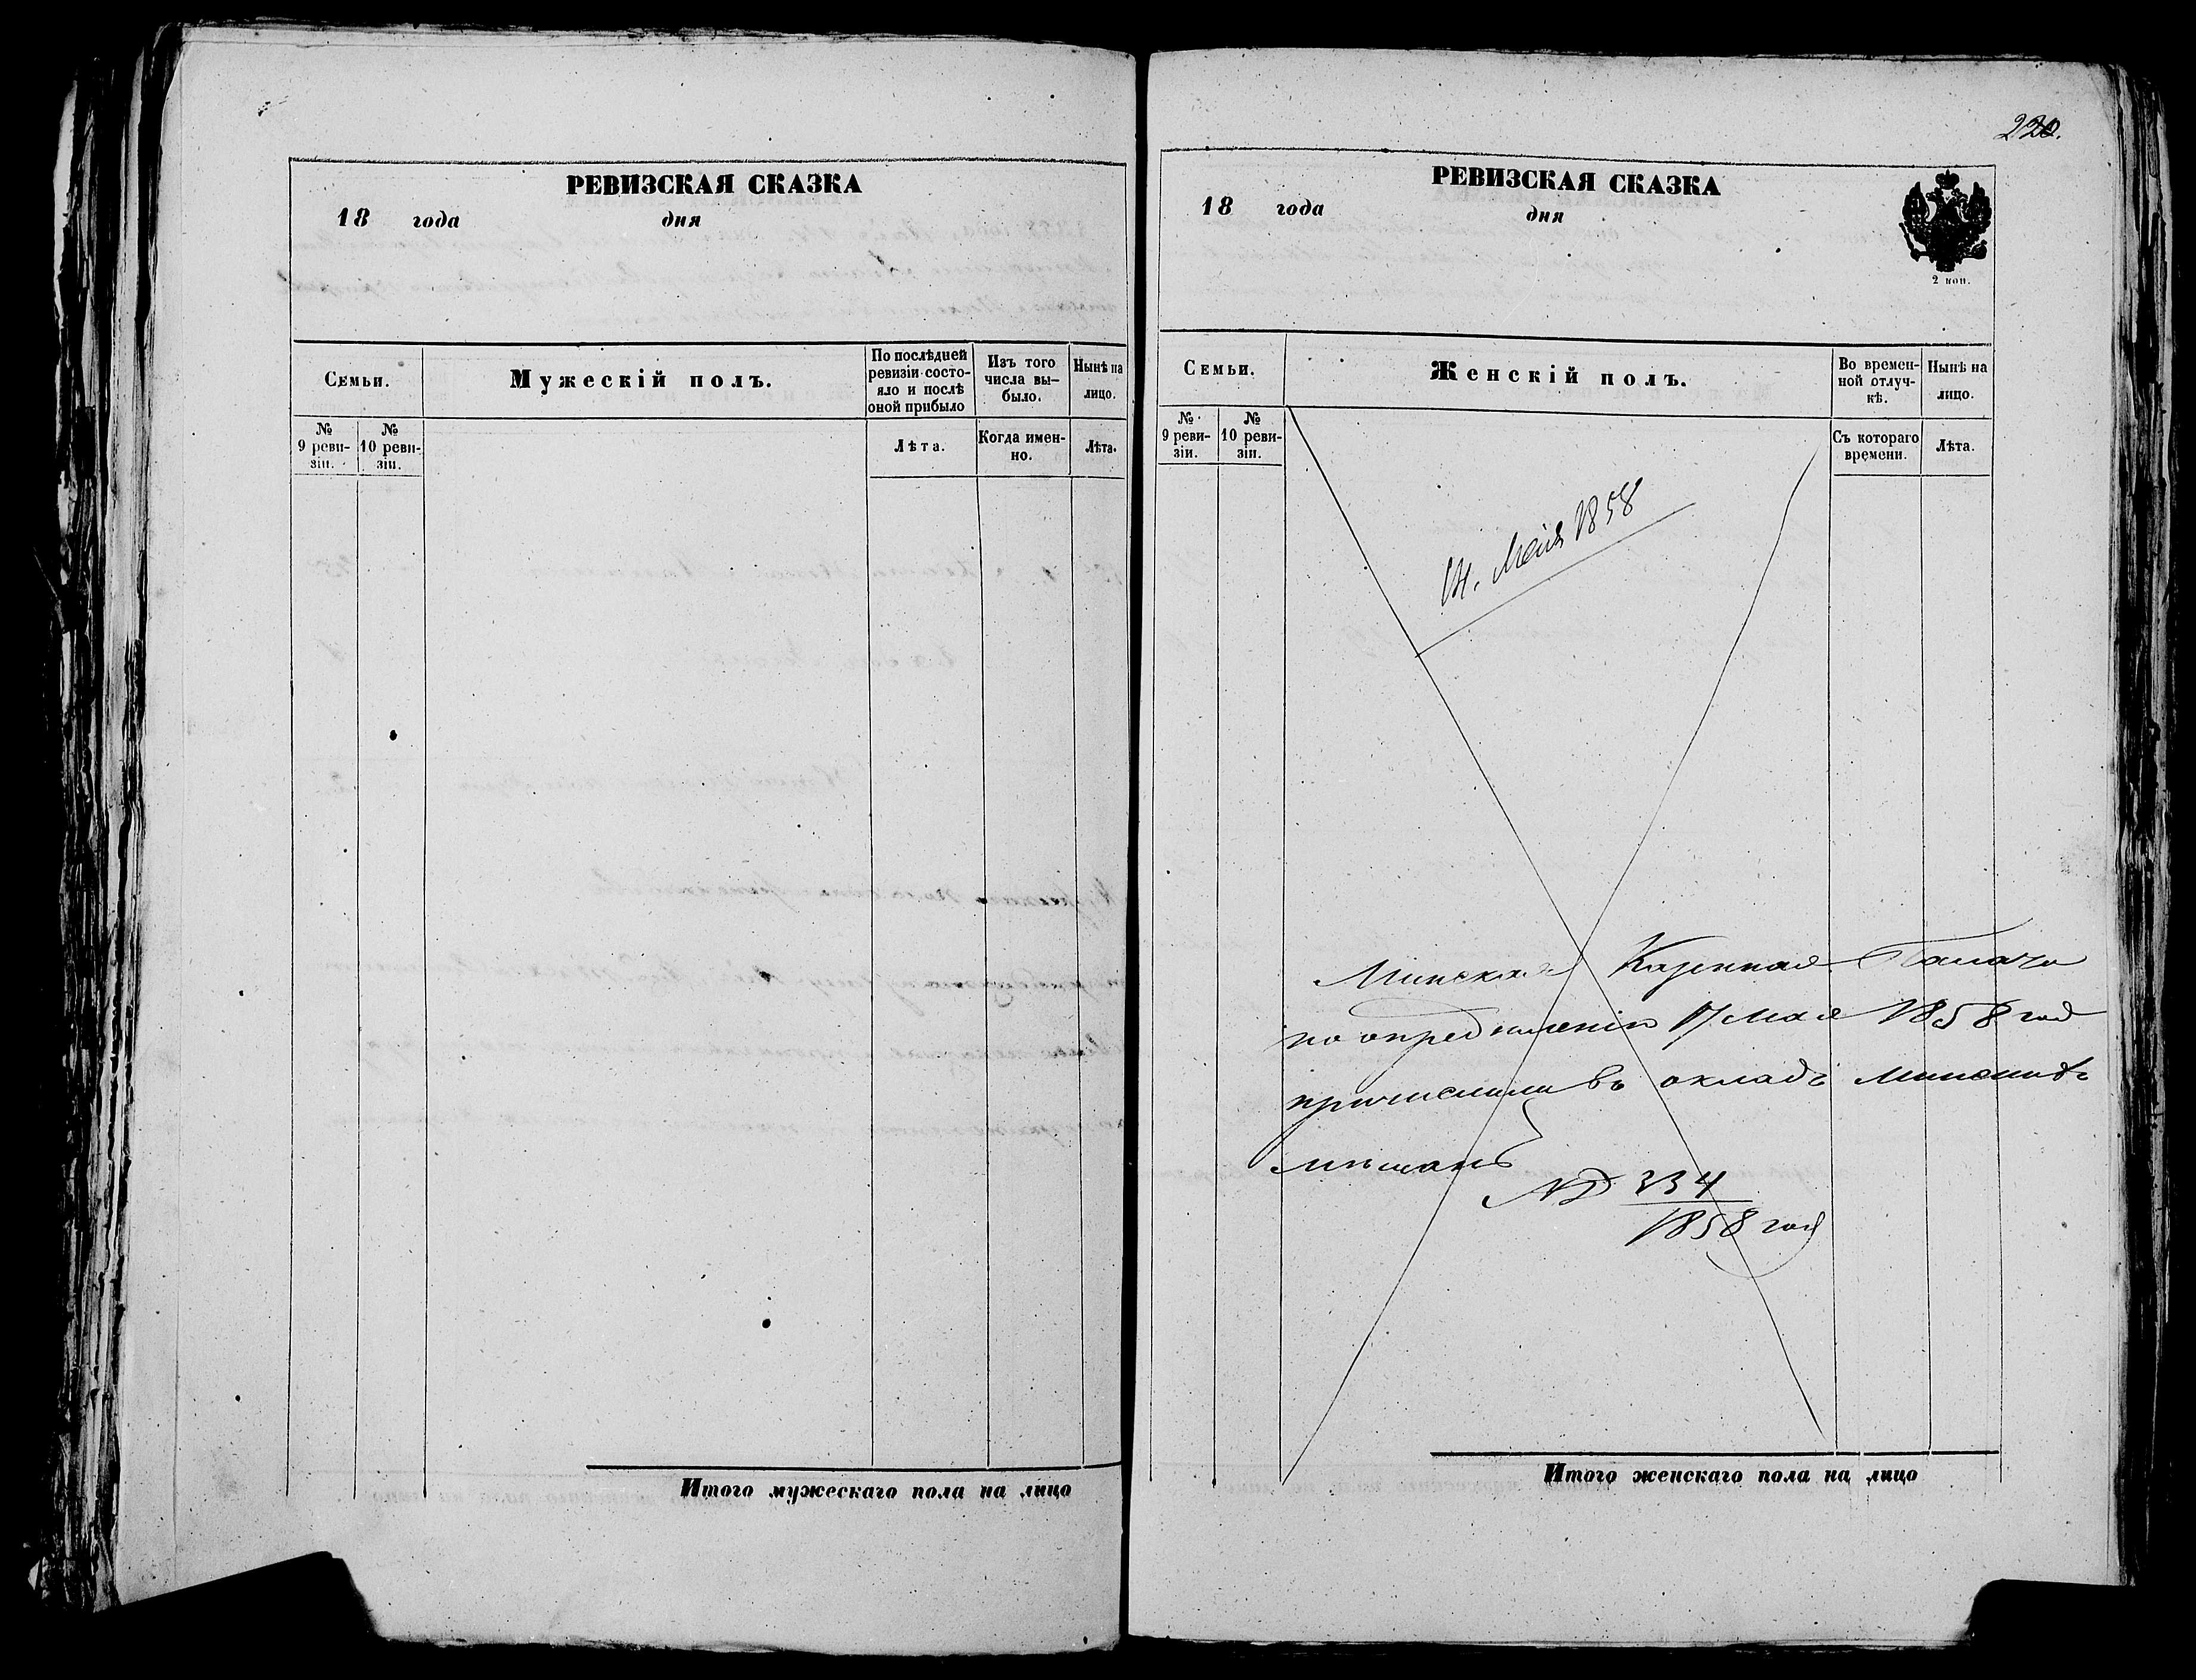 РЕВИЗСКАЯ СКАЗКА
18 года дня
Семьи.
Мужескій полъ.
По послѣдней ревизіи состо-
яло и послѣ
оной прибыло
Изъ того
числа вы-
было.
Нынѣ на
лицо.
№
9 реви-
зіи.
№
10 реви-
зіи.
Лѣта.
Когда имен-
но.
Лѣта.
Итого мужескаго пола на лицо
220.
РЕВИЗСКАЯ СКАЗКА
18 года дня
2 коп.
Семьи.
Женскій полъ.
Во времен-
ной отлуч-
кѣ.
Нынѣ на
лицо.
№
9 реви-
зіи.
№
10 реви-
зіи.
Съ котораго
времени.
Лѣта.
Мая 1858
Минская Казенная Палата
по опредѣленію 17 мая 1858 год
причислила въ окладъ минскихъ
мѣщанъ
№ 334
1858 год
Итого женскаго пола на лицо